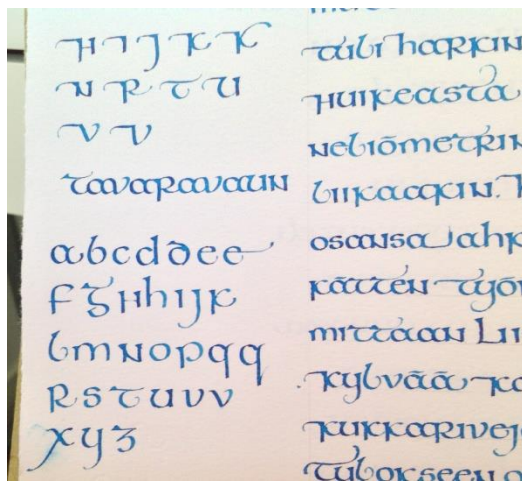 H I J K K
N R T U
V V
tavaravaun
abcddee
fghhijk
lmnopqq
rstuvv
xyz
harkin
huikeasta
neliömetrin
liikaakin.
osansa jahk
kätten työn
mittaan Lii
kylvää ka
kukkarivej
tulokseen